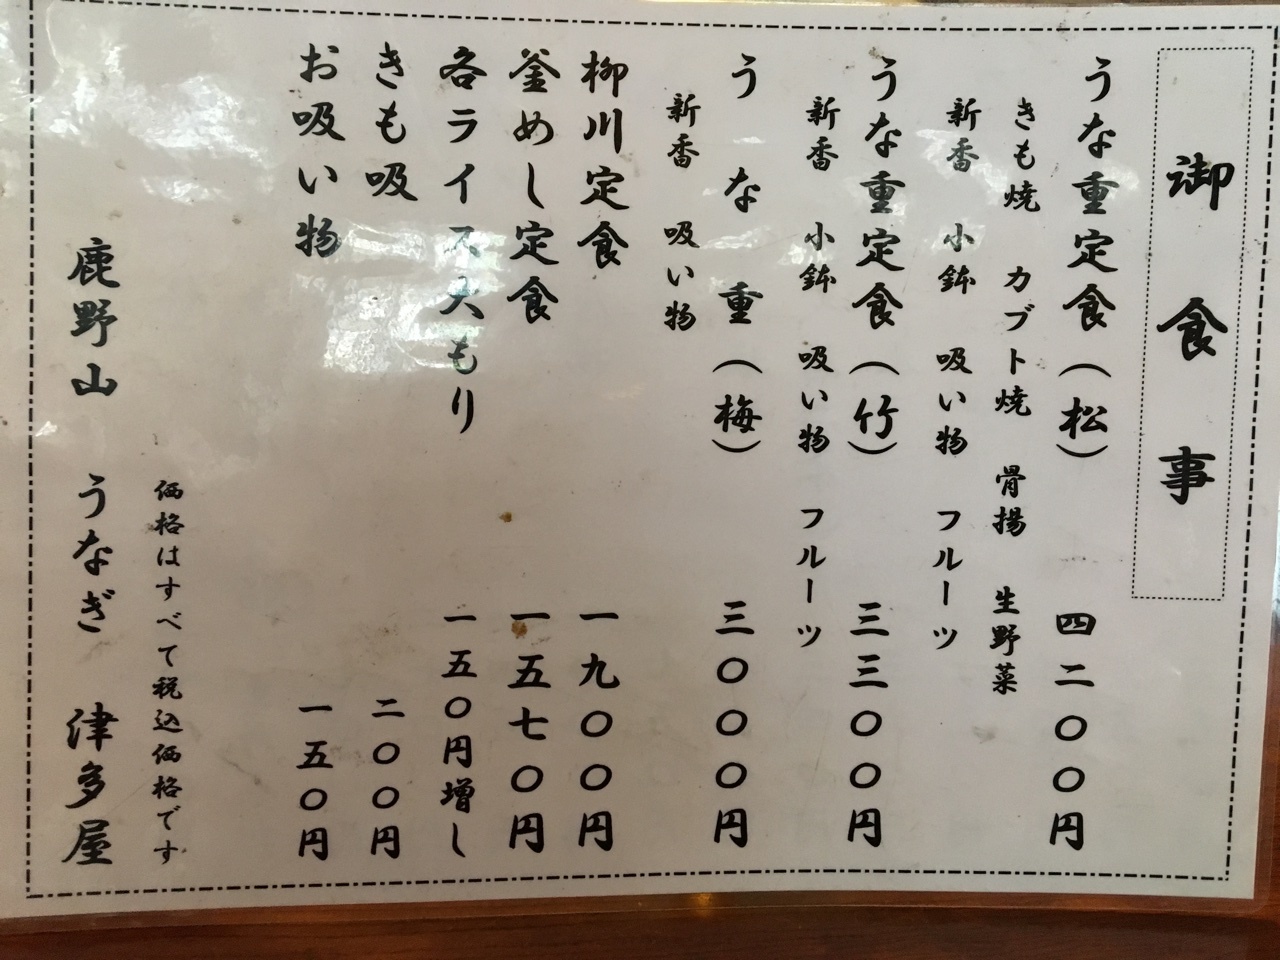 御食事
うな重定食（松）　四二〇〇円
きも焼　カブト焼　骨揚　生野菜
新香　小鉢　吸い物　フルーツ
うな重定食（竹）　三三〇〇円
新香　小鉢　吸い物　フルーツ
うな重（梅）　三〇〇〇円
新香　吸い物
柳川定食　一九〇〇円
釜めし定食　一五七〇円
各ライス大もり　一五〇円増し
きも吸　二〇〇円
お吸い物　一五〇円
価格はすべて税込価格です
鹿野山　うなぎ　津多屋